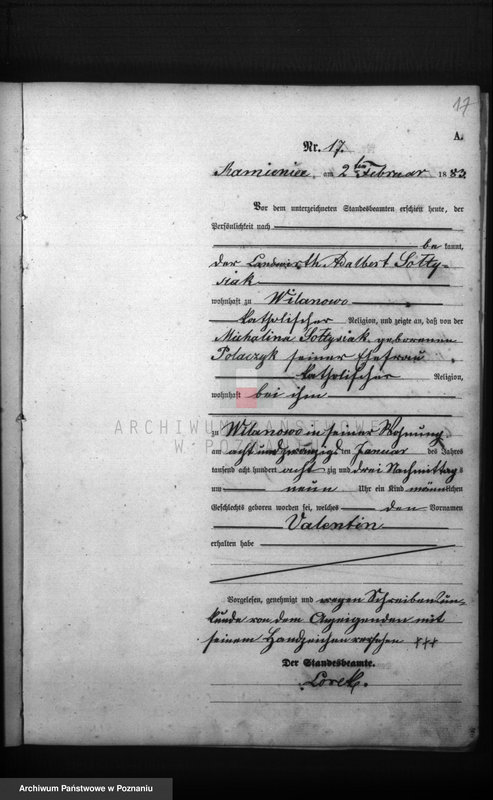 17
A.
Nr. 17.
Kamieniec, am 2ten Februar 1883.
Vor dem unterzeichneten Standesbeamten erschien heute, der
Persönlichkeit nach
be kannt,
der Landwirth Adalbert Sołty-
siak
wohnhaft zu Wilanowo
katholischer Religion, und zeigte an, daß von der
Michalina Sołtysiak geborenen
Polaczyk seiner Ehefrau
katholischer Religion,
wohnhaft bei ihm
ARCHIWUM PAŃSTWOWE
W POZNANIU
zu Wilanowo in seiner Wohnung
am acht und zwanzigsten Januar des Jahres
tausend acht hundert acht zig und drei Nachmittags
um neun Uhr ein Kind männlichen
Geschlechts geboren worden sei, welches den Vornamen
Valentin
erhalten habe
Vorgelesen, genehmigt und wegen Schreibensun-
kunde von dem Anzeigenden mit
seinem Handzeichen versehen +++
Der Standesbeamte.
Lorek.
Archiwum Państwowe w Poznaniu